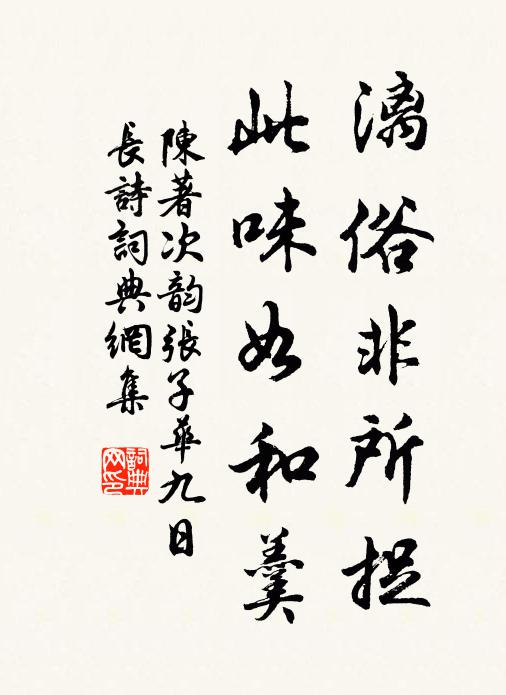 漓俗非所捉
此味如和羹
陳著次韵張子華九日
長詩詞典網集
詞典网印